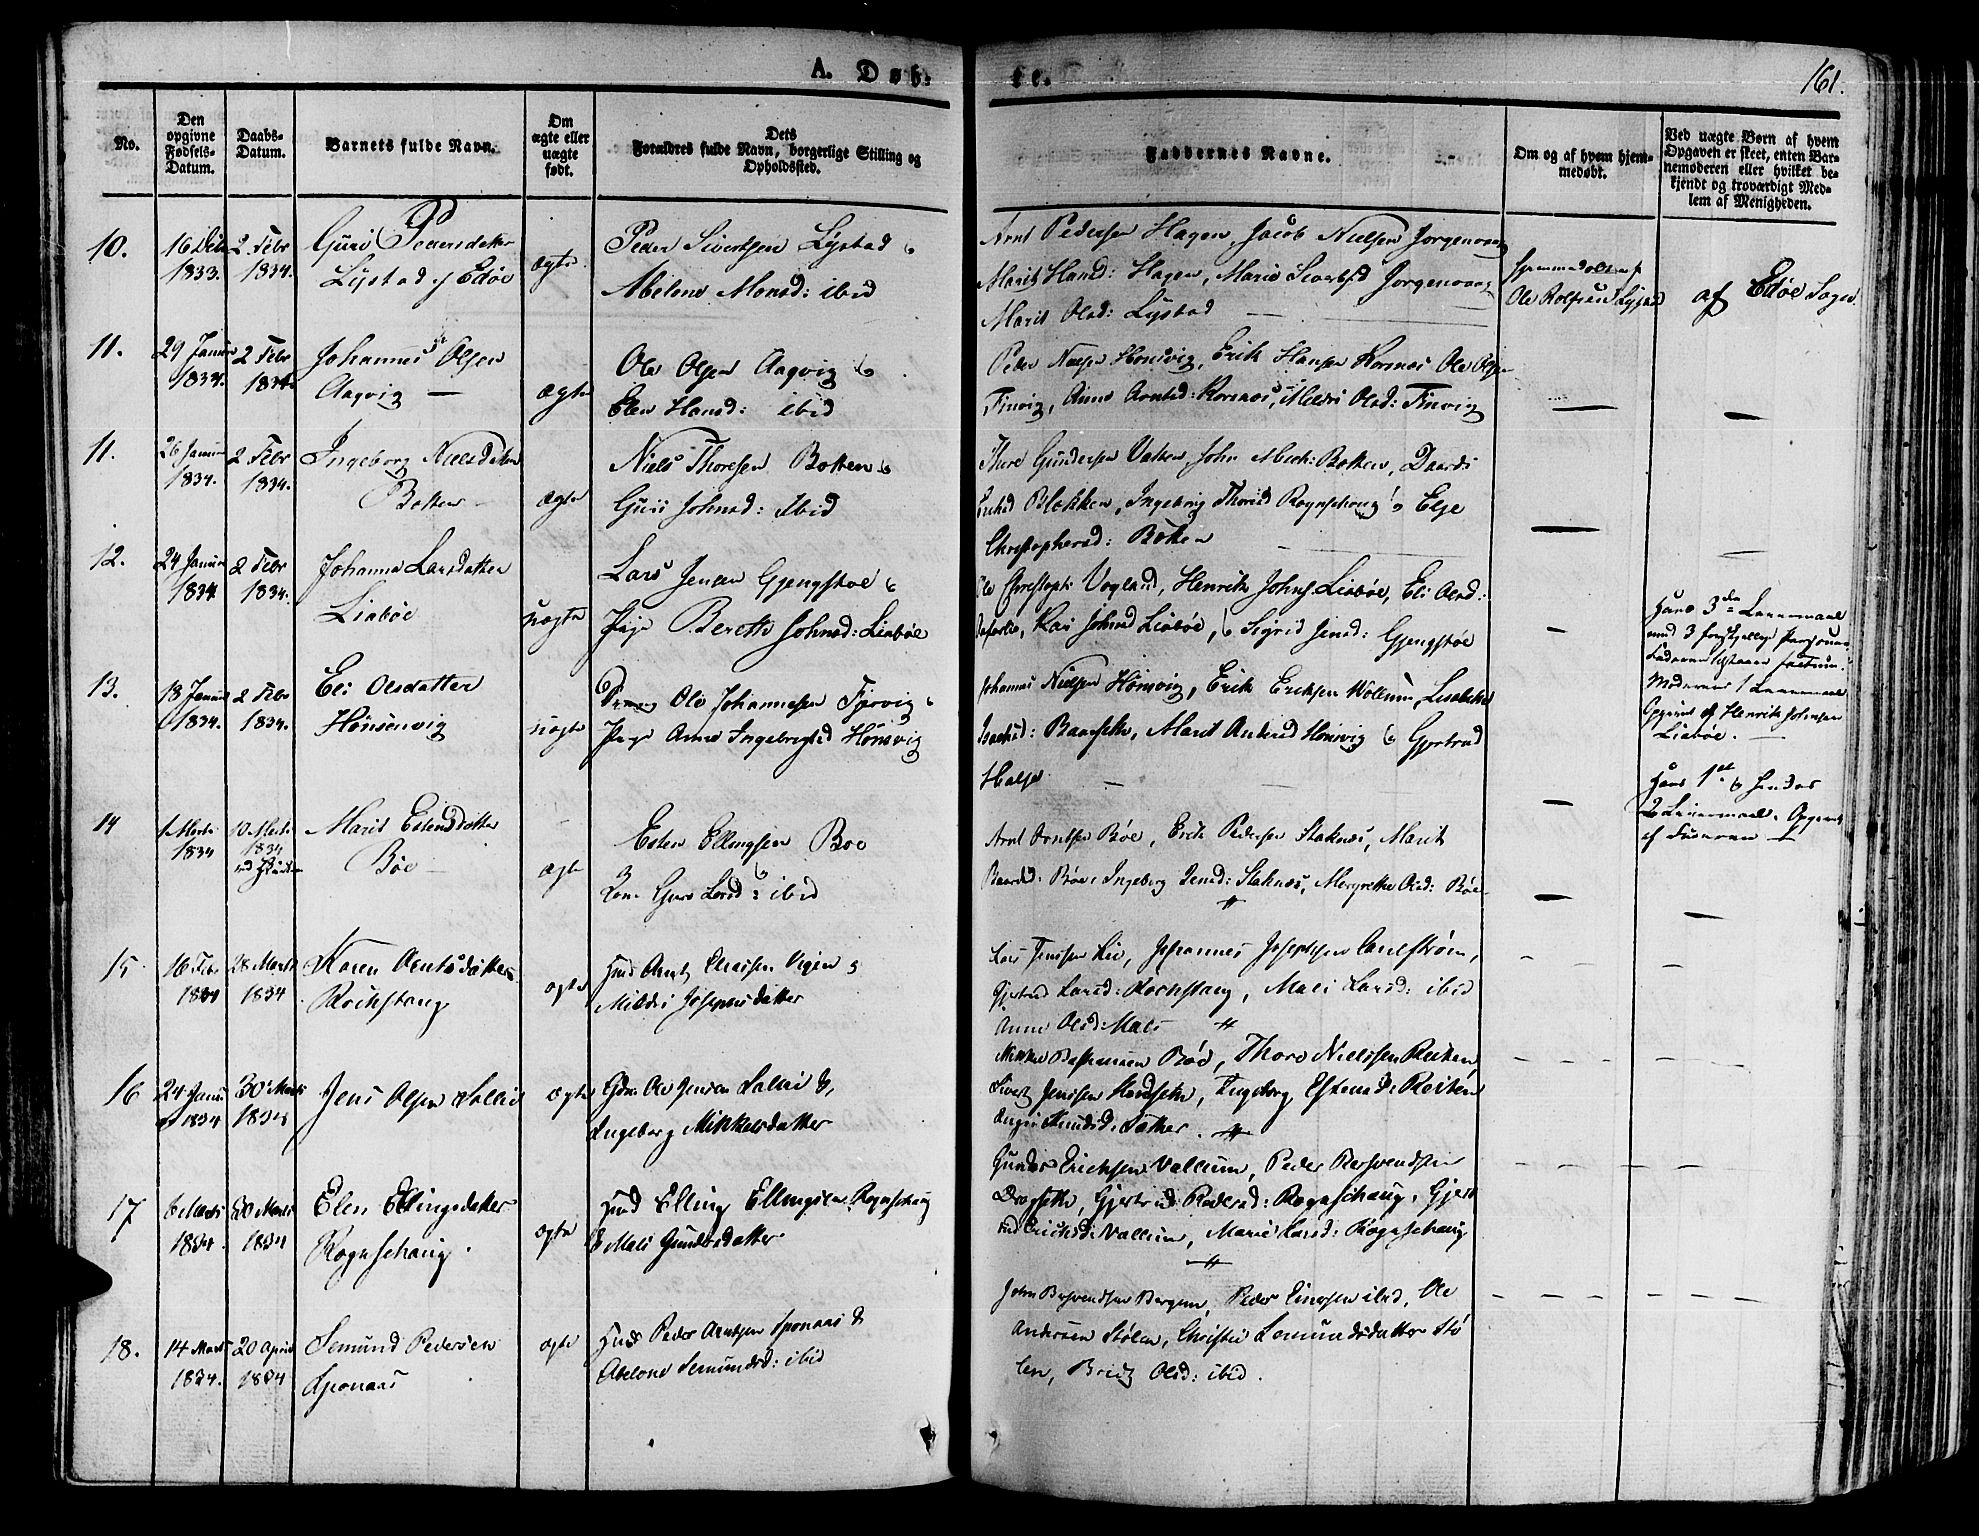 A. Døb-
te.
161.
No.
Den
opgivne
Fødsels-
Datum.
Daabs-
Datum.
Barnets fulde Navn.
Om
ægte eller
uægte
født.
Dets
Forældres fulde Navn, borgerlige Stilling og
Opholdssted.
Faddernes Navne.
Om og af hvem hjem-
medøbt.
Ved uægte Børn af hvem
Opgaven er skeet, enten Bar-
nemoderen eller hvilket be-
kjendt og troværdigt Med-
lem af Menigheden.
10.
16
1833.
2 Febr
1834.
Guri Pedersdatter
Lystad af Edøe
ægte
Peder Sivertsen Lystad
Abelone Monsd: ibid
Arnt Pedersen Hagen, Jacob Nielsen Jorgenvaag
Marit Hansd: Hagen, Marie Jorgenvaag
Marit Olsd: Lystad
Ole Rolfsen Lystad
af Edøe Sogn
11.
29 Januar
1834.
2 Febr
1834
Johannes Olsen
Aagvig
ægte
Ole Olsen Aagvig
Elen Hansd: ibid
Peder Nielsen Honsvig, Erik Hansen Korsnæs Ole Olsen
Finvig, Anne Arntsd: Korsnæs, Mildri Olsd: Finvig
11.
26 Januar
1834.
2 Febr
1834.
Ingeborg Nielsdatter
Botten
ægte
Niels Thoresen Botten
Guri Johnsd: Ibid
Thore Gundersen Vatten, John Botten,
Blekken, Ingeborg Thoresd Rognschaug Else
Christophersd: Botten
12.
24 Januar
1834
2 Febr
1834.
Johanna Larsdatter
Liabøe
uægte
Lars Jensen Gjengstøe
Pige Berette Johnsd: Liabøe
Ole Vogland, Henrik Johns. Liabøe, Eli Olsd:
Kari Johnsd Liabøe, Sigrid Jensd: Gjengstøe
Hans 3die Leiermaal
med 3 forskjellige
Moderens 1 Leiermaal
Opgivet af Henrik Johnsen
Liabøe.
13.
13 Januar
1834.
2 Febr
1834.
Eli Olsdatter
Hönsvig
uægte
Ole Johannesen Fjervig
Pige Anne Ingebrigtsd Hönsvig
Johannes Nielsen Hönsvig, Erik Eriksen Wollum,
Baardset, Marit Andersd Hönsvig Gjertrud
Halse
Hans 1ste
2 Leiermaal. Opgivet
af
14
1 Marts
1834
10 Marts
1834
Marit Estensdatter
Böe
ægte
Esten Ellingsen Böe
Kone Guro Larsd: ibid
Arnt Arntsen Böe, Erik Pedersen Staknæs, Marit
Baardsd: Böe, Ingeborg Jensd: Staknæs, Margrethe Olsd: Böe
15
16 Febr
1834
28 Marts
1834
Karen Arntsdatter
Rochstang
ægte
Mildri Josephsdatter
Lars Jenssen Lie, Johannes Josephsen
Gjertrud Larsd: Rochstang, Mali Larsd: ibid
Anne Olsd: Mals
16
24 Januar
1834
30 Marts
1834
Jens Olsen Sollie
ægte
Gdm. Ole Jensen Sollie &
Ingeborg Mikkelsdatter
Mikkel Böe, Thore Nielssen Reiten
Sivert Jenssen, Ingeborg Estensd: Reiten
17
6 Marts
1834.
30 Marts
1834
Elen Ellingsdatter
Rognschaug
ægte
Husmd Elling Ellingsen Rognschaug
& Mali Gundersdatter
Gunder Erichsen Vallum, Peder
Gjertrud Pedersd: Rognschaug, Gjert
rud Erichsd: Vallum, Marie Larsd: Rognschaug
18.
14 Marts
1834.
20 April
1834
Semund Pedersen
Sponaas
ægte
Husmd Peder Arntsen Sponaas &
Abelone Semundsd: ibid
John Bergem, Peder Einersen ibid, Ole
Andersen Stölen, Christie Semundsdatter Stö
len, Brit Olsd: ibid.